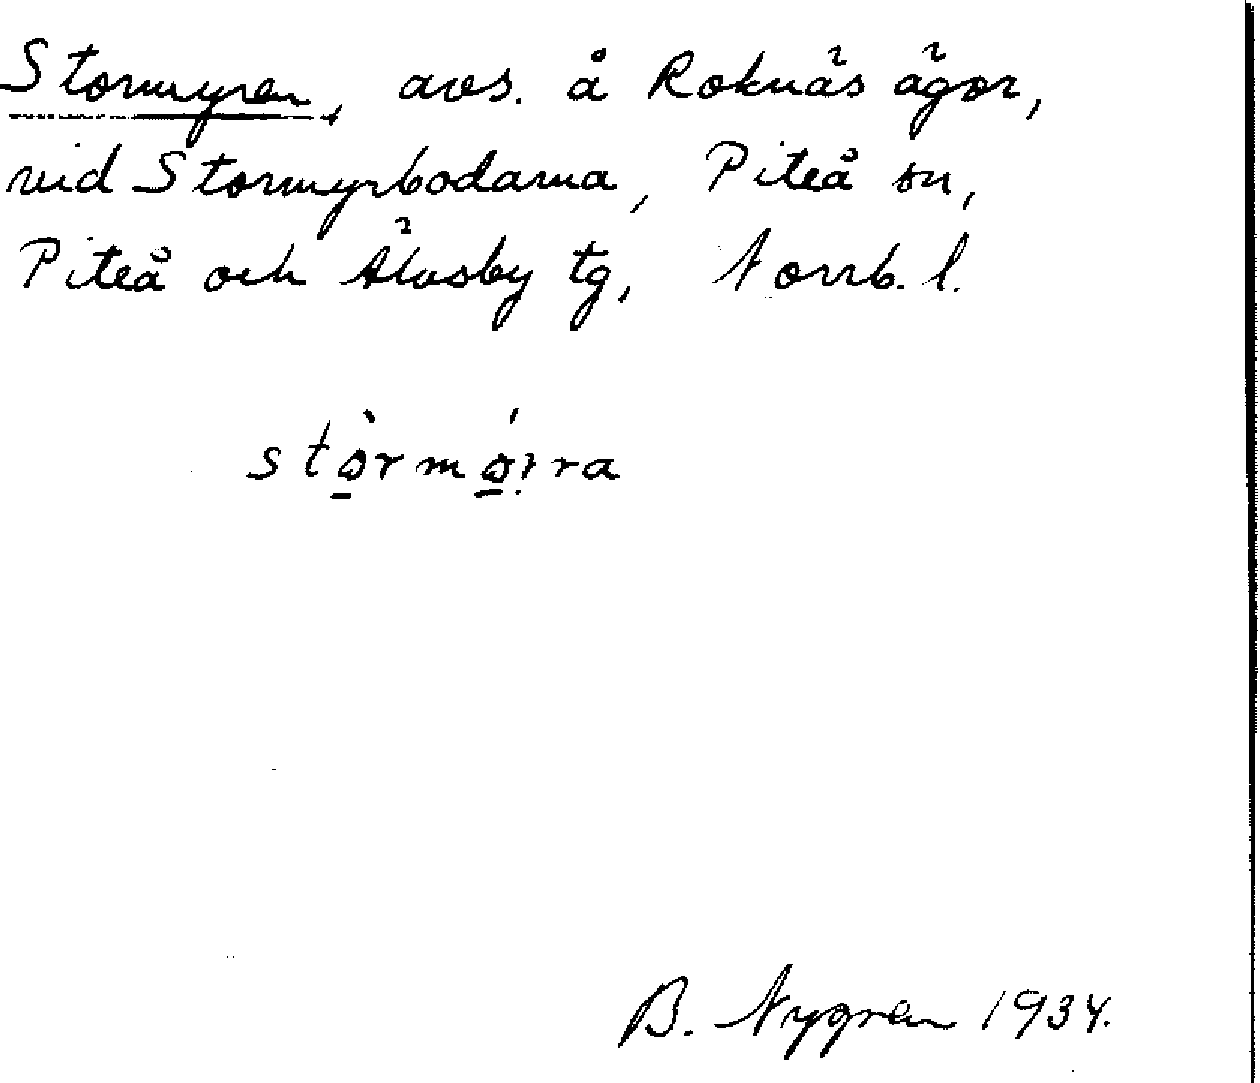 Stormyren, avs. å Roknäs ägor,
vid Stormyrbodarna, Piteå sn,
Piteå och Älvsby tg, Norrb. l.
B. Nygren 1934.